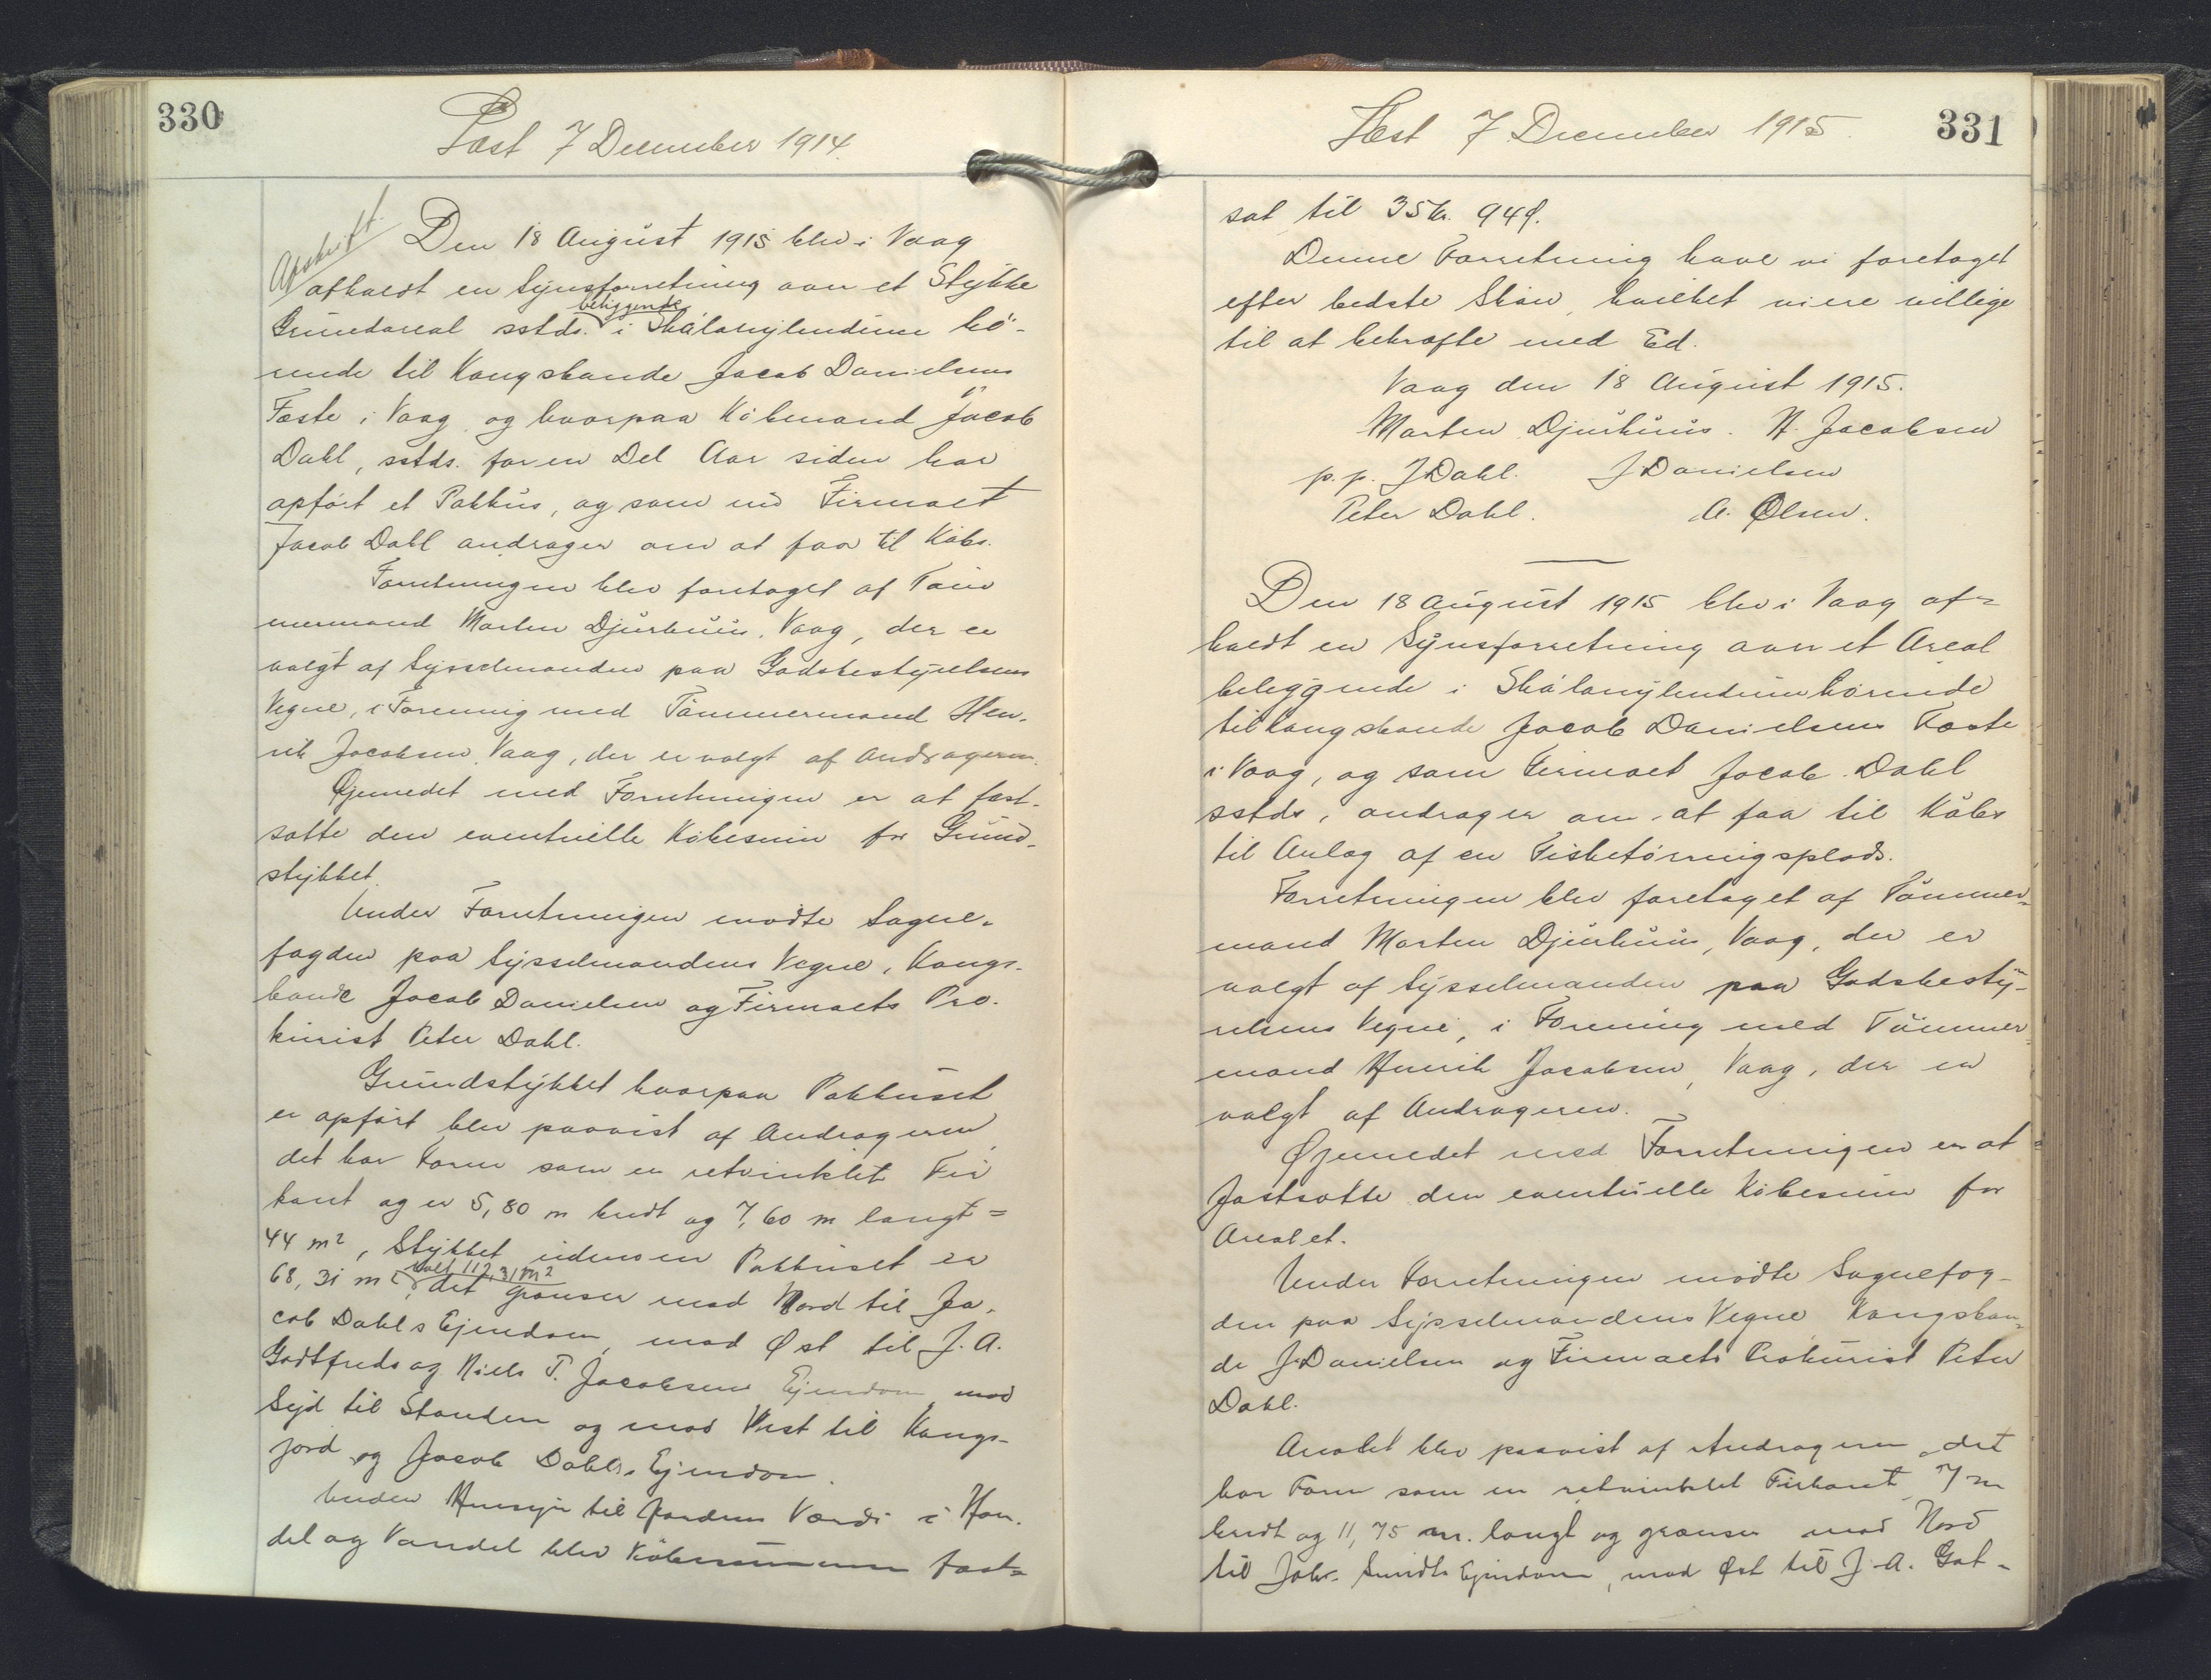 330
Læst 7 December 1914.
Afskrift.
Den 18 August 1915 blev i Vaag
afholdt en Synsforretning over et Stykke
beliggende
Grundareal sstds. i Skálanylendum hö-
rende til Kongsbonde Jacob Danielsens
Fæste i Vaag, og hvorpaa Köbmand Jacob
Dahl, sstds. for en Del Aar siden har
opført et Pakhus, og som nu Firmaet
Jacob Dahl andrager om at faa til Købs.
Forretningen blev foretaget af Töm
mermand Morten Djurhuus, Vaag, der er
valgt af Sysselmanden paa Godsbestyrelsens
Vegne, i Forening med Tömmermand Hen-
rik Jacobsen, Vaag, der er valgt af Andrageren.
Øjemedet med Forretningen er at fast-
sætte den eventuelle Köbesum for Grund-
stykket.
Under Forretningen mödte Sogne-
fogden paa Sysselmandens Vegne, Kongs-
bonde Jacob Danielsen og Firmaets Pro-
kurist Peter Dahl.
Grundstykket hvorpaa Pakhuset
er opført blev paavist af Andrageren,
det har Form som en retvinklet Fir
kant og er 5,80 m bredt og 7,60 m langt =
44 m², Stykket udenom Pakhuset er
ialt 112,31 m²
68,31 m², det grænser mod Nord til Ja-
cob Dahls Ejendom, mod Øst til J. A.
Godtfreds og Niels P. Jacobsens Ejendom, mod
Syd til Standen og mod Vest til Kongs-
jord og Jacob Dahls Ejendom.
Under Hensyn til Jordens Værdi i Han-
del og Vandel blev Købesummen fast-
Læst 7 December 1915.
331
sat til 35 Kr. 94 Ø.
Denne Forretning have vi foretaget
efter bedste Skön, hvilket vi ere villige
til at bekræfte med Ed.
Vaag den 18 August 1915.
Morten Djurhuus. H. Jacobsen
p. p. J Dahl. J Danielsen
Peter Dahl. A. Olsen.
Den 18 August 1915 blev i Vaag af-
holdt en Synsforretning over et Areal
beliggende i Skálanylendum hørende
til Kongsbonde Jacob Danielsens Fæste
i Vaag, og som Firmaet Jacob Dahl
sstds, andrager om at faa til Købs
til Anlæg af en Fisketörringsplads.
Forretningen blev foretaget af Tömmer-
mand Morten Djurhuus, Vaag, der er
valgt af Sysselmanden paa Godsbesty-
relsens Vegne, i Forening med Tömmer-
mand Henrik Jacobsen, Vaag, der er
valgt af Andrageren.
Øjemedet med Forretningen er at
fastsætte den eventuelle Köbesum for
Arealet.
Under Forretningen mödte Sognefog-
den paa Sysselmandens Vegne Kongsbon-
de J. Danielsen og Firmaets Prokurist Peter
Dahl.
Arealet blev paavist af Andrageren, det
har Form som en retvinklet Firkant, 7 m
bredt og 11,75 m. langt og grænser mod Nord
til Johs. Smidts Ejendom, mod Øst til J. A. Got-